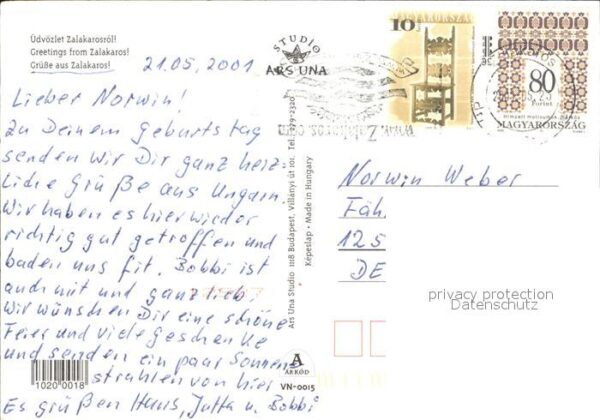 Üdvözlet Zalakarosról!
Greetings from Zalakaros!
Grüße aus Zalakaros!
21.05.2001
Lieber Norwin!
Zu Deinem Geburtstag
senden wir Dir ganz herz-
liche Grüße aus Ungarn.
Wir haben es hier wieder
richtig gut getroffen und
baden uns fit. Bobbi ist
auch mit und ganz lieb.
Wir wünschen Dir eine schöne
Feier und viele Geschenke
und senden ein paar Sonnen
strahlen von hier
Es grüßen Hans, Jutta u. Bobbi
10200018
STUDIO
ARS UNA
Ars Una Studio 1118 Budapest, Villányi út 101.
Képeslap • Made in Hungary
A
ÁRKÁD
VN-0015
10
MAGYARORSZÁG
www.Zalakaros.com
80
Forint
MAGYARORSZÁG
Norwin Weber
Fäh
125
DE
privacy protection
Datenschutz